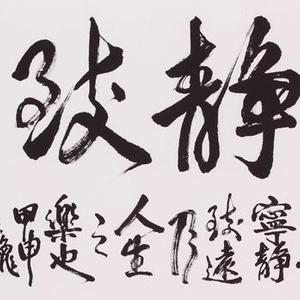 静致
寧静
致遠
乃
人生
之
樂也
甲申